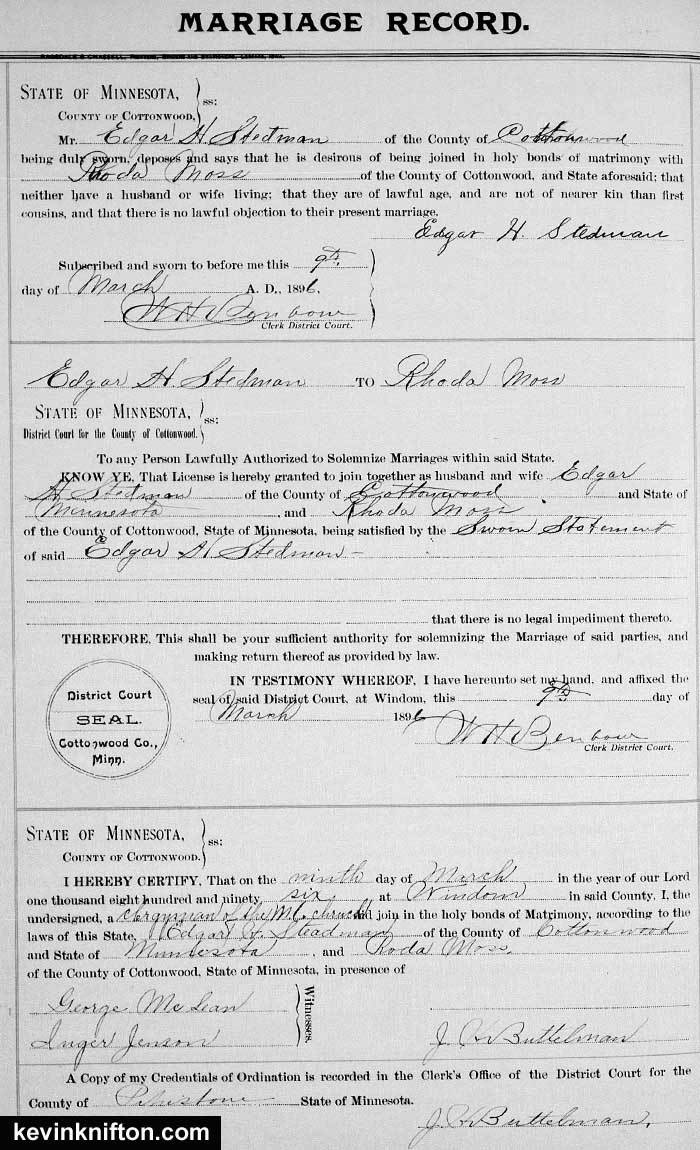 MARRIAGE RECORD.
STATE OF MINNESOTA,
COUNTY OF COTTONWOOD, ss:
Mr. Edgar H Stedman of the County of Cottonwood
being duly sworn, deposes and says that he is desirous of being joined in holy bonds of matrimony with
Rhoda Moss of the County of Cottonwood, and State aforesaid; that
neither have a husband or wife living; that they are of lawful age, and are not of nearer kin than first
cousins, and that there is no lawful objection to their present marriage.
Edgar H. Stedman
Subscribed and sworn to before me this 9th
day of March A. D., 1896.
W H Benbow
Clerk District Court.
Edgar H Stedman TO Rhoda Moss
STATE OF MINNESOTA,
District Court for the County of Cottonwood. ss:
To any Person Lawfully Authorized to Solemnize Marriages within said State.
KNOW YE, That License is hereby granted to join together as husband and wife Edgar
H Stedman of the County of Cottonwood and State of
Minnesota, and Rhoda Moss
of the County of Cottonwood, State of Minnesota, being satisfied by the Sworn Statement
of said Edgar H Stedman
that there is no legal impediment thereto.
THEREFORE, This shall be your sufficient authority for solemnizing the Marriage of said parties, and
making return thereof as provided by law.
IN TESTIMONY WHEREOF, I have hereunto set my hand, and affixed the
seal of said District Court, at Windom, this 9th day of
March 1896
W H Benbow
Clerk District Court.
District Court
SEAL.
Cottonwood Co.,
Minn.
STATE OF MINNESOTA,
COUNTY OF COTTONWOOD. ss:
I HEREBY CERTIFY, That on the ninth day of March in the year of our Lord
one thousand eight hundred and ninety six at Windom in said County, I, the
undersigned, a clergyman of the M.E. church did join in the holy bonds of Matrimony, according to the
laws of this State, Edgar Steadman of the County of Cottonwood
and State of Minnesota, and Roda Moss,
of the County of Cottonwood, State of Minnesota, in presence of
George McLean
Inger Jenson
Witnesses.
J H Buttelman
A Copy of my Credentials of Ordination is recorded in the Clerk's Office of the District Court for the
County of State of Minnesota.
J H Buttelman.
kevinknifton.com